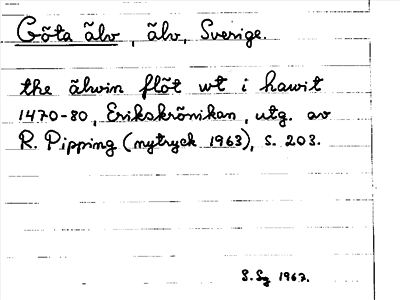 Göta älv, älv, Sverige.
the älwin flöt wt i hawit
1470-80, Erikskrönikan, utg. av
R. Pipping (nytryck 1963), s. 203.
S.Sg 1967.